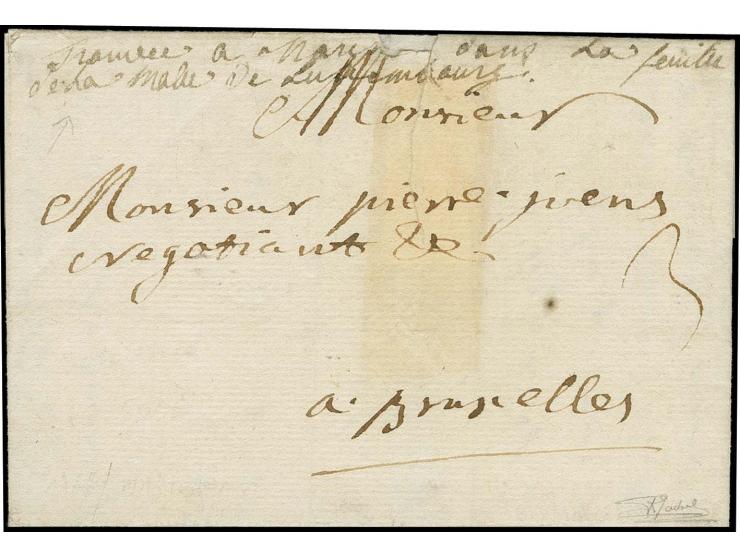 trouvée a dans La feuille
de La Malle De Luxembourg.
Monsieur
Monsieur pierre joens
negotiant &c
3
a Bruxelles